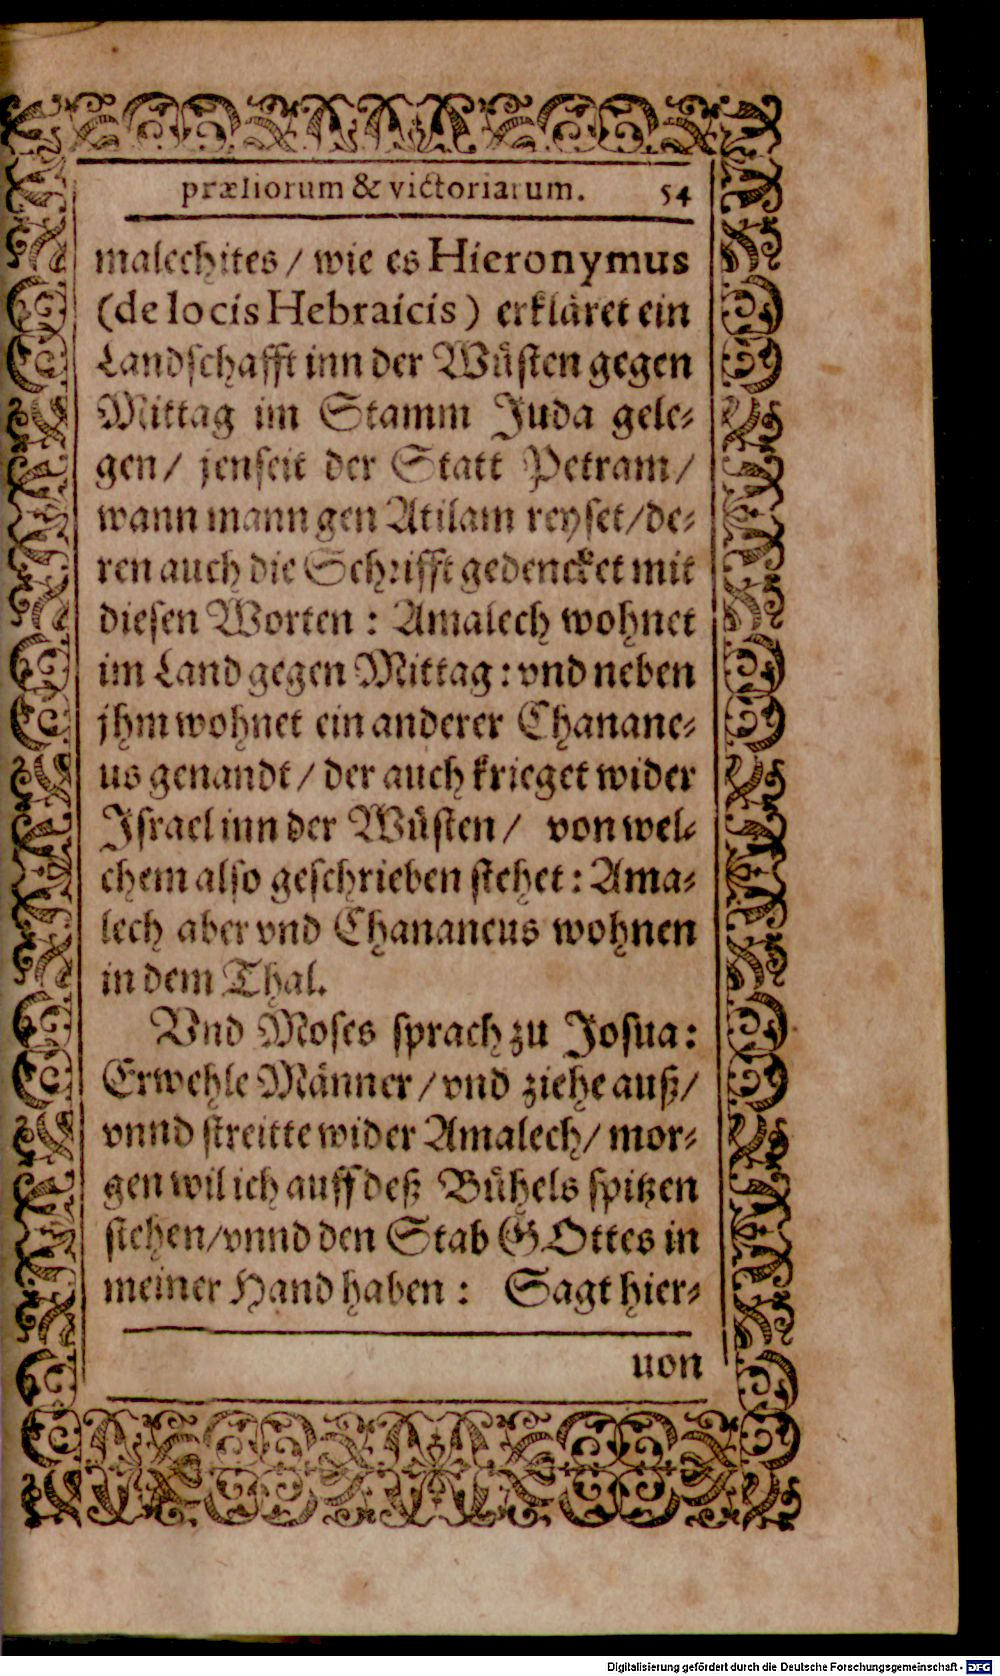 præliorum & victoriarum. 54
malechites / wie es Hieronymus
(de locis Hebraicis) erkläret ein
Landschafft inn der Wüsten gegen
Mittag im Stamm Juda gele-
gen / jenseit der Statt Petram /
wann mann gen Atilam reyset / de-
ren auch die Schrifft gedencket mit
diesen Worten : Amalech wohnet
im Land gegen Mittag : vnd neben
jhm wohnet ein anderer Chanane-
us genandt / der auch krieget wider
Israel inn der Wüsten / von wel-
chem also geschrieben stehet : Ama-
lech aber vnd Chananeus wohnen
in dem Thal.
Vnd Moses sprach zu Josua :
Erwehle Männer / vnd ziehe auß /
vnnd streitte wider Amalech / mor-
gen wil ich auff deß Bühels spitzen
stehen / vnnd den Stab GOttes in
meiner Hand haben : Sagt hier-
uon
Digitalisierung gefördert durch die Deutsche Forschungsgemeinschaft - DFG